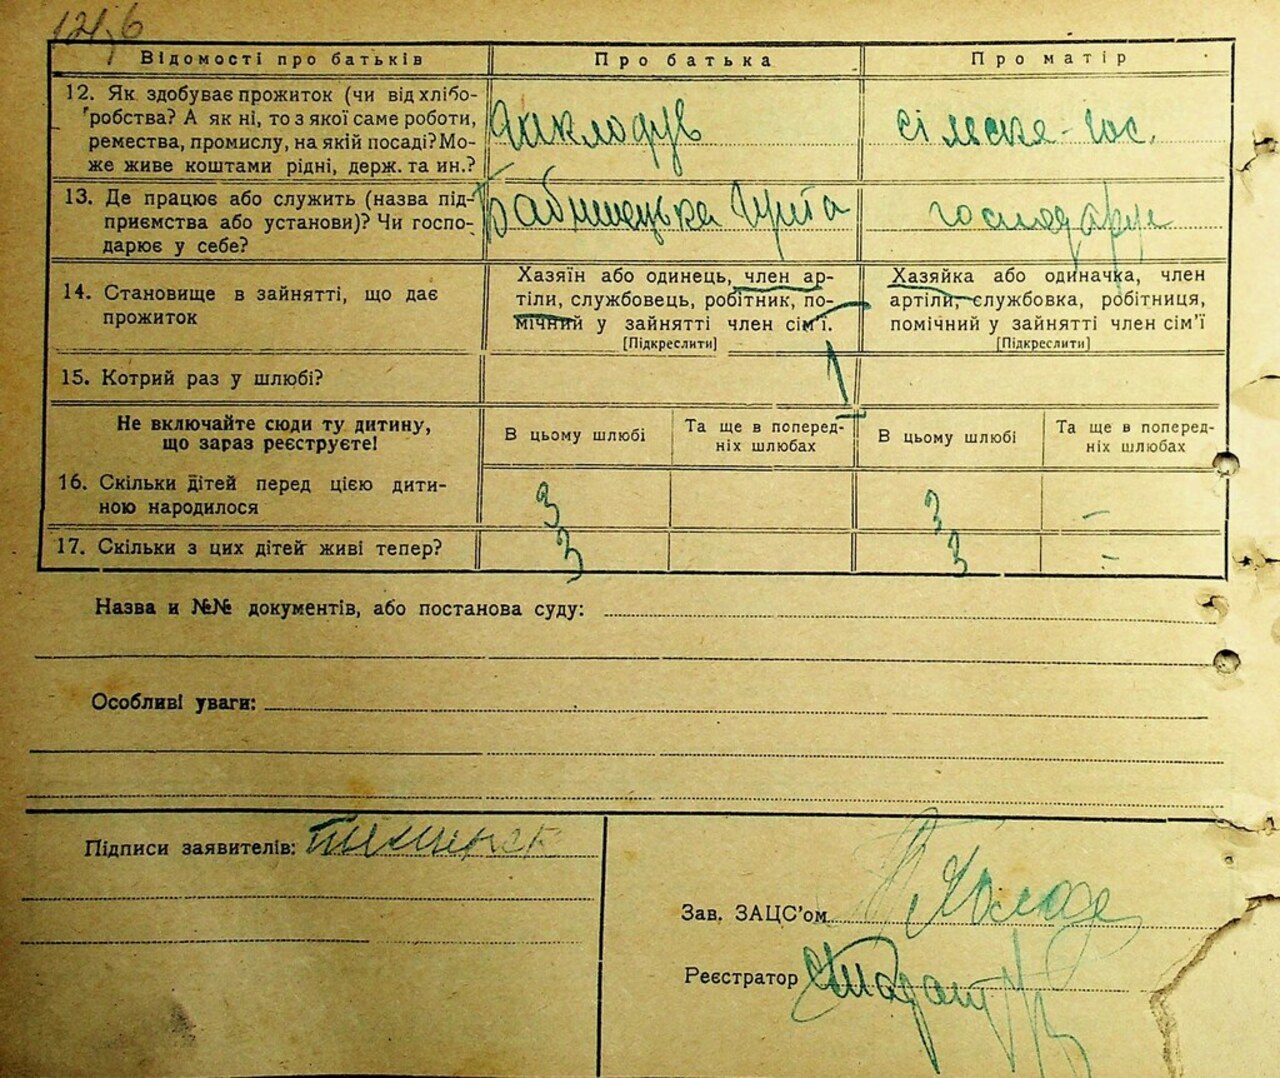 Відомості про батьків
Про батька
Про матір
12. Як здобуває прожиток (чи від хлібо-
робства? А як ні, то з якої саме роботи,
ремества, промислу, на якій посаді? Мо-
же живе коштами рідні, держ. та ин.?
сільське-гос.
13. Де працює або служить (назва під-
приємства або установи)? Чи госпо-
дарює у себе?
господарує
14. Становище в зайнятті, що дає
прожиток
Хазяїн або одинець, член ар-
тіли, службовець, робітник, по-
мічний у зайнятті член сім'ї.
[Підкреслити]
Хазяйка або одиначка, член
артіли, службовка, робітниця,
помічний у зайнятті член сім'ї
[Підкреслити]
15. Котрий раз у шлюбі?
1
Не включайте сюди ту дитину,
що зараз реєструєте!
В цьому шлюбі
Та ще в поперед-
ніх шлюбах
В цьому шлюбі
Та ще в поперед-
ніх шлюбах
16. Скільки дітей перед цією дити-
ною народилося
3
3
-
17. Скільки з цих дітей живі тепер?
3
3
-
Назва и №№ документів, або постанова суду:
Особливі уваги:
Підписи заявителів:
Зав. ЗАЦС'ом
Реєстратор